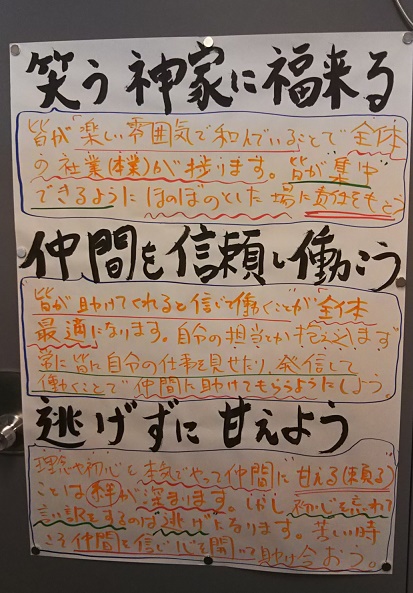 笑う神家に福来る
皆が「楽しい雰囲気で和んでいることで「全体
の社業(本業)が捗ります。皆が集中
できるようにほのぼのとした場に責任をもとう
仲間を信頼し働こう
皆が助けてくれると信じて働くことが「全体
最適」になります。自分の担当とか抱え込まず
常に皆に自分の仕事を見せたり、発信して
働くことで仲間に助けてもらうようにしよう。
逃げずに甘えよう
理念や初心を本気でやって仲間に甘える(頼る)
ことは絆が深まります。しかし初心を忘れて
言い訳をするのは逃げになります。苦しい時
こそ仲間を信じ心を開いて助け合おう。